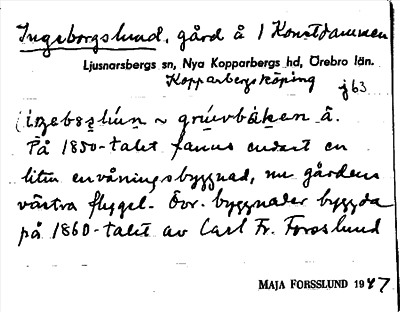 Ingeborgslund, gård å 1 Konstdammen
Ljusnarsbergs sn, Nya Kopparbergs hd, Örebro län.
Kopparbergs köping
j63
På 1850-talet fanns endast en
liten envåningsbyggnad, nu gårdens
västra flygel. Övr. byggnader byggda
på 1860-talet av Carl Fr. Forsslund
MAJA FORSSLUND 1947